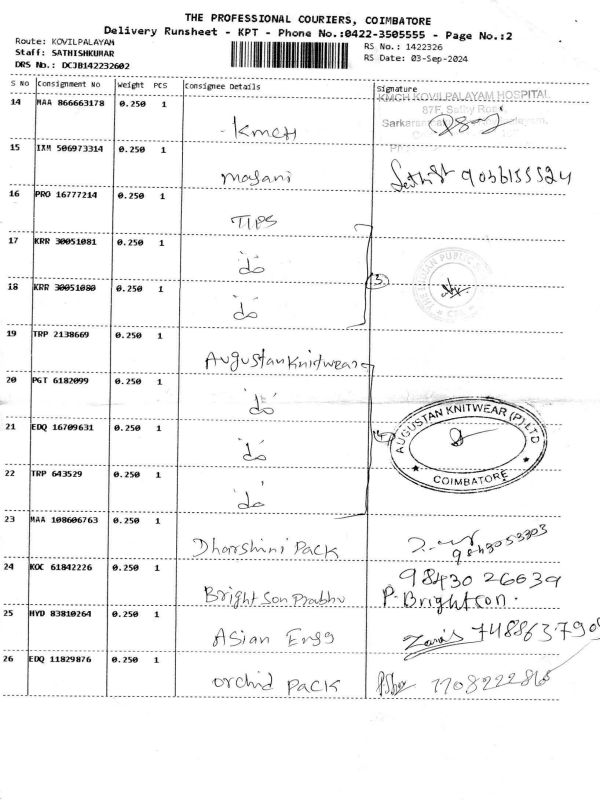 THE PROFESSIONAL COURIERS, COIMBATORE
Delivery Runsheet - KPT - Phone No.:0422-3505555 - Page No.:2
Route: KOVILPALAYAM
Staff: SATHISHKUMAR
DRS No.: DCJB142232602
RS No.: 1422326
RS Date: 03-Sep-2024
S NO Consignment No Weight PCS Consignee Details Signature
14 MAA 866663178 0.250 1 KMCH
KMCH KOVILPALAYAM HOSPITAL
87F, Sathy Road,
15 IXM 506973314 0.250 1 Masani Sathish 9036155524
16 PRO 16777214 0.250 1 TIPS
17 KRR 30051081 0.250 1 "do"
18 KRR 30051080 0.250 1 "do"
(3)
19 TRP 2138669 0.250 1 Augustan Knitwear
20 PGT 6182099 0.250 1 "do"
21 EDQ 16709631 0.250 1 "do"
22 TRP 643529 0.250 1 "do"
(4)
AUGUSTAN KNITWEAR (P) LTD
★ COIMBATORE ★
23 MAA 108606763 0.250 1 Dharshini Pack
24 KOC 61842226 0.250 1 Brightson Prabhu 98430 26639
P. Brightson.
25 HYD 83810264 0.250 1 Asian Engg
26 EDQ 11829876 0.250 1 orchid PACK